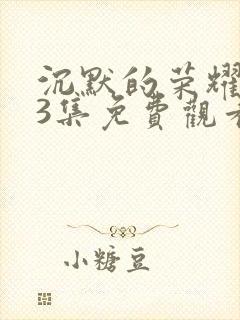 沉默的荣耀
3集免費觀看
小糖豆